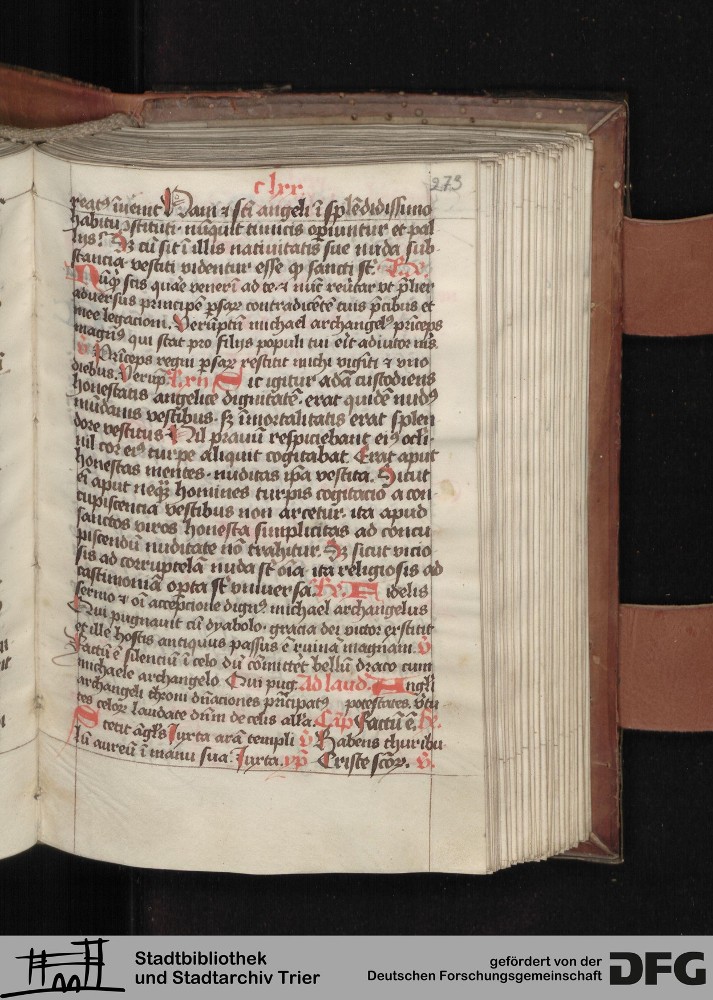 clxx.
273
reatꝰ īuenit Nam ⁊ sc̄i angeli ī splēdidissimo
habitu ꝯstituti · nūquit tunicis opiuntur et pal
lijs? Sꝫ cū sit ī illis natiuitatis sue nuda sub
stancia · vestiti videntur esse qꝫ sancti st̄. Rx.
Nūqͥd scis quare venerī ad te · ⁊ nūc reūtar vt p̄lier
aduersus principē ꝑsaꝝ contradicētē tuis p̄cibus et
mee legacioni. Verūptn̄ michael archangelꝰ p̄ceps
magnꝰ qui stat pro filijs populi tui ēit adiutor mꝰ.
v̄ Prīceps regni ꝑsaꝝ restitit michi viginti ⁊ vno
diebus. Verūp. lxii Sic igitur adā custodiens
honestatis angelice dignitatē · erat quidē nudꝰ
mūdanis vestibus · sꝫ īmortalitatis erat splen
dore vestitus Nil prauū respiciebant eiꝰ ocli ·
nil cor eiꝰ turpe aliquit cogitabat Erat aput
honestas mentes · nuditas ip̄a vestita. Sicut
eī aput nequā homines turpis cogitacio a con
cupiscencia vestibus non arcetur · ita apud
sanctos viros honesta simplicitas ad concu
piscendū nuditate nō trahitur. Sꝫ sicut vicio
sis ad corruptelā nuda st̄ oīa · ita religiosis ad
castimoniā opta st̄ vniuersa. Rx. Fidelis
sermo ⁊ oī accepcione dignꝰ michael archangelus
Qui pugnauit cū dyabolo · gracia dei victor exstitit
et ille hostis antiquus passus ē ruinā magnam. v̄
Factū ē silenciū ī celo dū cōmittēt bellū draco cum
michaele archangelo. Qui pug. Ad laud. Angli
archangeli throni dn̄aciones prīcipatꝰ potestates. v̄tu
tes celoꝝ laudate dn̄m de celis all'a. Cap̄ Factū ē. Rx.
Stetit āgl's Iuxta arā templi v̄ Habens thuribu
lū aureū ī manu sua. Iuxta. yp̄ Criste sc̄oꝝ. v̄.
Stadtbibliothek
und Stadtarchiv Trier
gefördert von der
Deutschen Forschungsgemeinschaft DFG